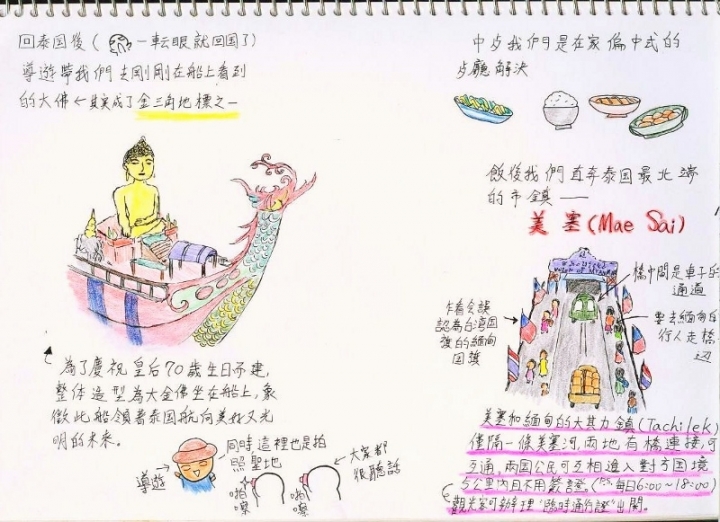 回泰国後(一転眼就回国了)
導遊帶我們去剛剛在船上看到
的大佛←其实成了金三角地標之一
為了慶祝皇后70歲生日所建,
整体造型為大金佛坐在船上,象
徵此船領著泰国航向美好又光
明的未來。
導遊
同時這裡也是拍
照聖地
啪嚓
啪嚓
大家都
很聽話
中歺我們是在家偏中式的
歺廳解決
飯後我們直奔泰国最北邊
的市鎮——
美塞(Mae Sai)
橋中間是車子在
通過
乍看会誤
認為台湾国
旗的緬甸
国旗
要去緬甸的
行人走橋
边
美塞和緬甸的大其力鎮(Tachilek)
僅隔一條美塞河,兩地有橋連接,可
互通,兩国公民可互相進入對方国境
5公里内且不用簽證。(P.S.每日6:00~18:00)
觀光客可辦理"臨時通行證"出関。